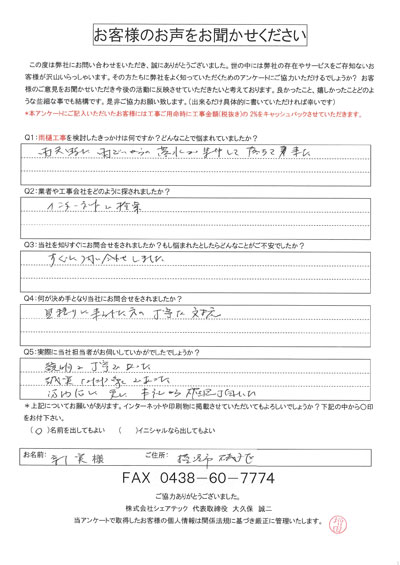 お客様のお声をお聞かせください
この度は弊社にお問い合わせをいただき、誠にありがとうございました。世の中には弊社の存在やサービスをご存知ないお
客様が沢山いらっしゃいます。その方たちに弊社をよく知っていただくためのアンケートにご協力いただけるでしょうか？ お客
様のご意見をお聞かせいただき今後の活動に反映させていただきたいと考えております。良かったこと、嬉しかったことどのよ
うな些細な事でも結構です。是非ご協力お願い致します。（出来るだけ具体的に書いていただければ幸いです）
*本アンケートにご記入いただいたお客様には工事ご用命時に工事金額(税抜き)の 2%をキャッシュバックさせていただきます。
Q1：雨樋工事を検討したきっかけは何ですか？どんなことで悩まれていましたか？
Q2：業者や工事会社をどのように探されましたか？
インターネットで検索
Q3：当社を知りすぐにお問合せをされましたか？もし悩まれたとしたらどんなことがご不安でしたか？
すぐに問い合わせしました
Q4：何が決め手となり当社にお問合せをされましたか？
Q5：実際に当社担当者がお伺いしていかがでしたでしょうか？
*上記についてお願いがあります。インターネットや印刷物に掲載させていただいてもよろしいでしょうか？下記の中から〇印
をお付下さい。
（ 〇 ）名前を出してもよい （ ）イニシャルなら出してもよい
お名前： 様 ご住所：
FAX 0438-60-7774
ご協力ありがとうございました。
株式会社シェアテック 代表取締役 大久保 誠二
当アンケートで取得したお客様の個人情報は関係法規に基づき厳正に管理いたします。